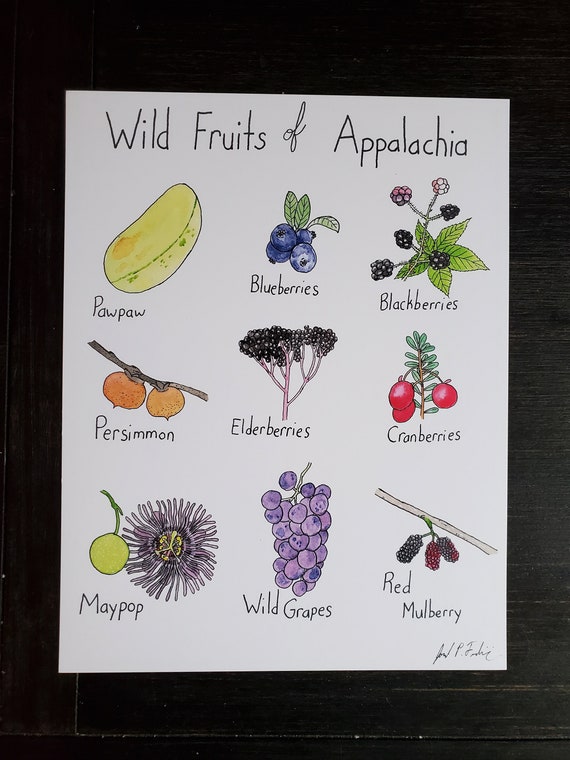 Wild Fruits of Appalachia
Pawpaw
Blueberries
Blackberries
Persimmon
Elderberries
Cranberries
Maypop
Wild Grapes
Red
Mulberry